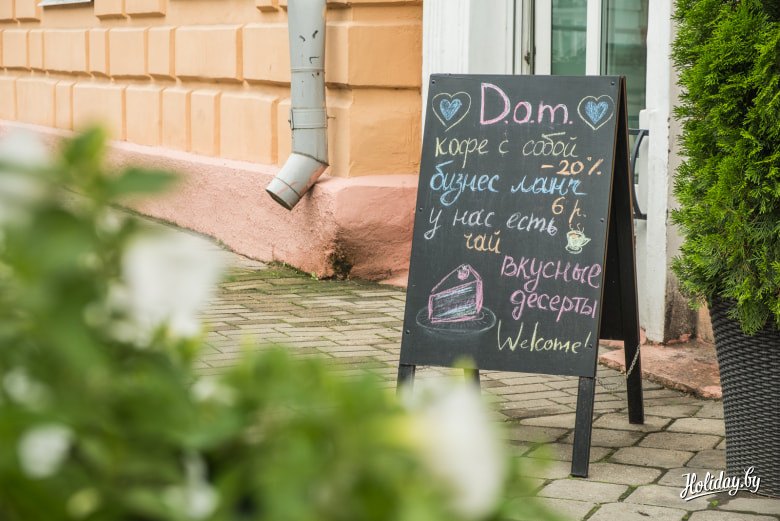 D.a.m.
кофе с собой
-20%
бизнес ланч
6 р.
у нас есть
чай
вкусные
десерты
Welcome!
Holiday.by